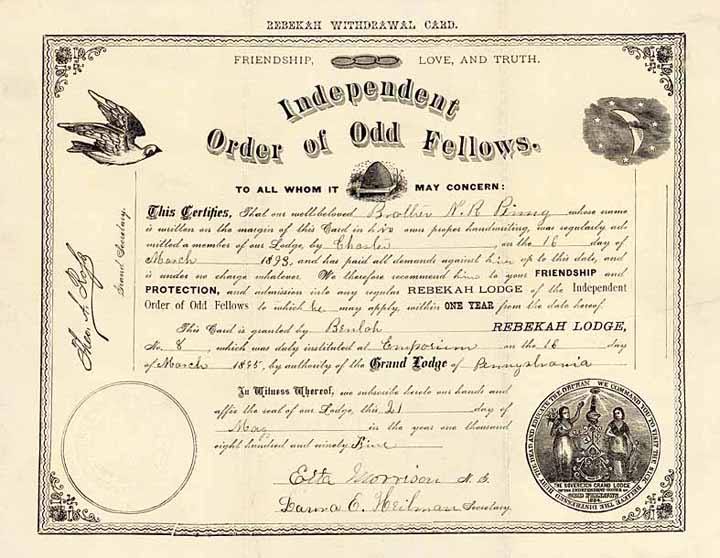 REBEKAH WITHDRAWAL CARD.
FRIENDSHIP, LOVE, AND TRUTH.
Independent
Order of Odd Fellows.
TO ALL WHOM IT MAY CONCERN:
This Certifies, That our well-beloved Brother N. R. whose name
is written on the margin of this Card in his own proper handwriting, was regularly ad-
mitted a member of our Lodge, by Charter, on the 16 day of
March 1893, and has paid all demands against him up to this date, and
is under no charge whatever. We therefore recommend him to your FRIENDSHIP and
PROTECTION, and admission into any regular REBEKAH LODGE of the Independent
Order of Odd Fellows to which he may apply, within ONE YEAR from the date hereof.
This Card is granted by Beulah REBEKAH LODGE,
No. 8, which was duly instituted at Emporium on the 16 day
of March 1895, by authority of the Grand Lodge of Pennsylvania
In Witness Whereof, we subscribe hereto our hands and
affix the seal of our Lodge, this 21 day of
May in the year one thousand
eight hundred and ninety Five
Etta Morrison N. G.
E. Heilman Secretary.
Grand Secretary.
WE COMMAND YOU TO VISIT THE SICK RELIEVE THE DISTRESSED BURY THE DEAD AND EDUCATE THE ORPHAN
THE SOVEREIGN GRAND LODGE
OF THE INDEPENDENT ORDER OF
ODD FELLOWS